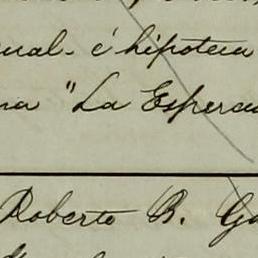 ual- é hipoteca
na "La Esperan
Roberto B. Ga